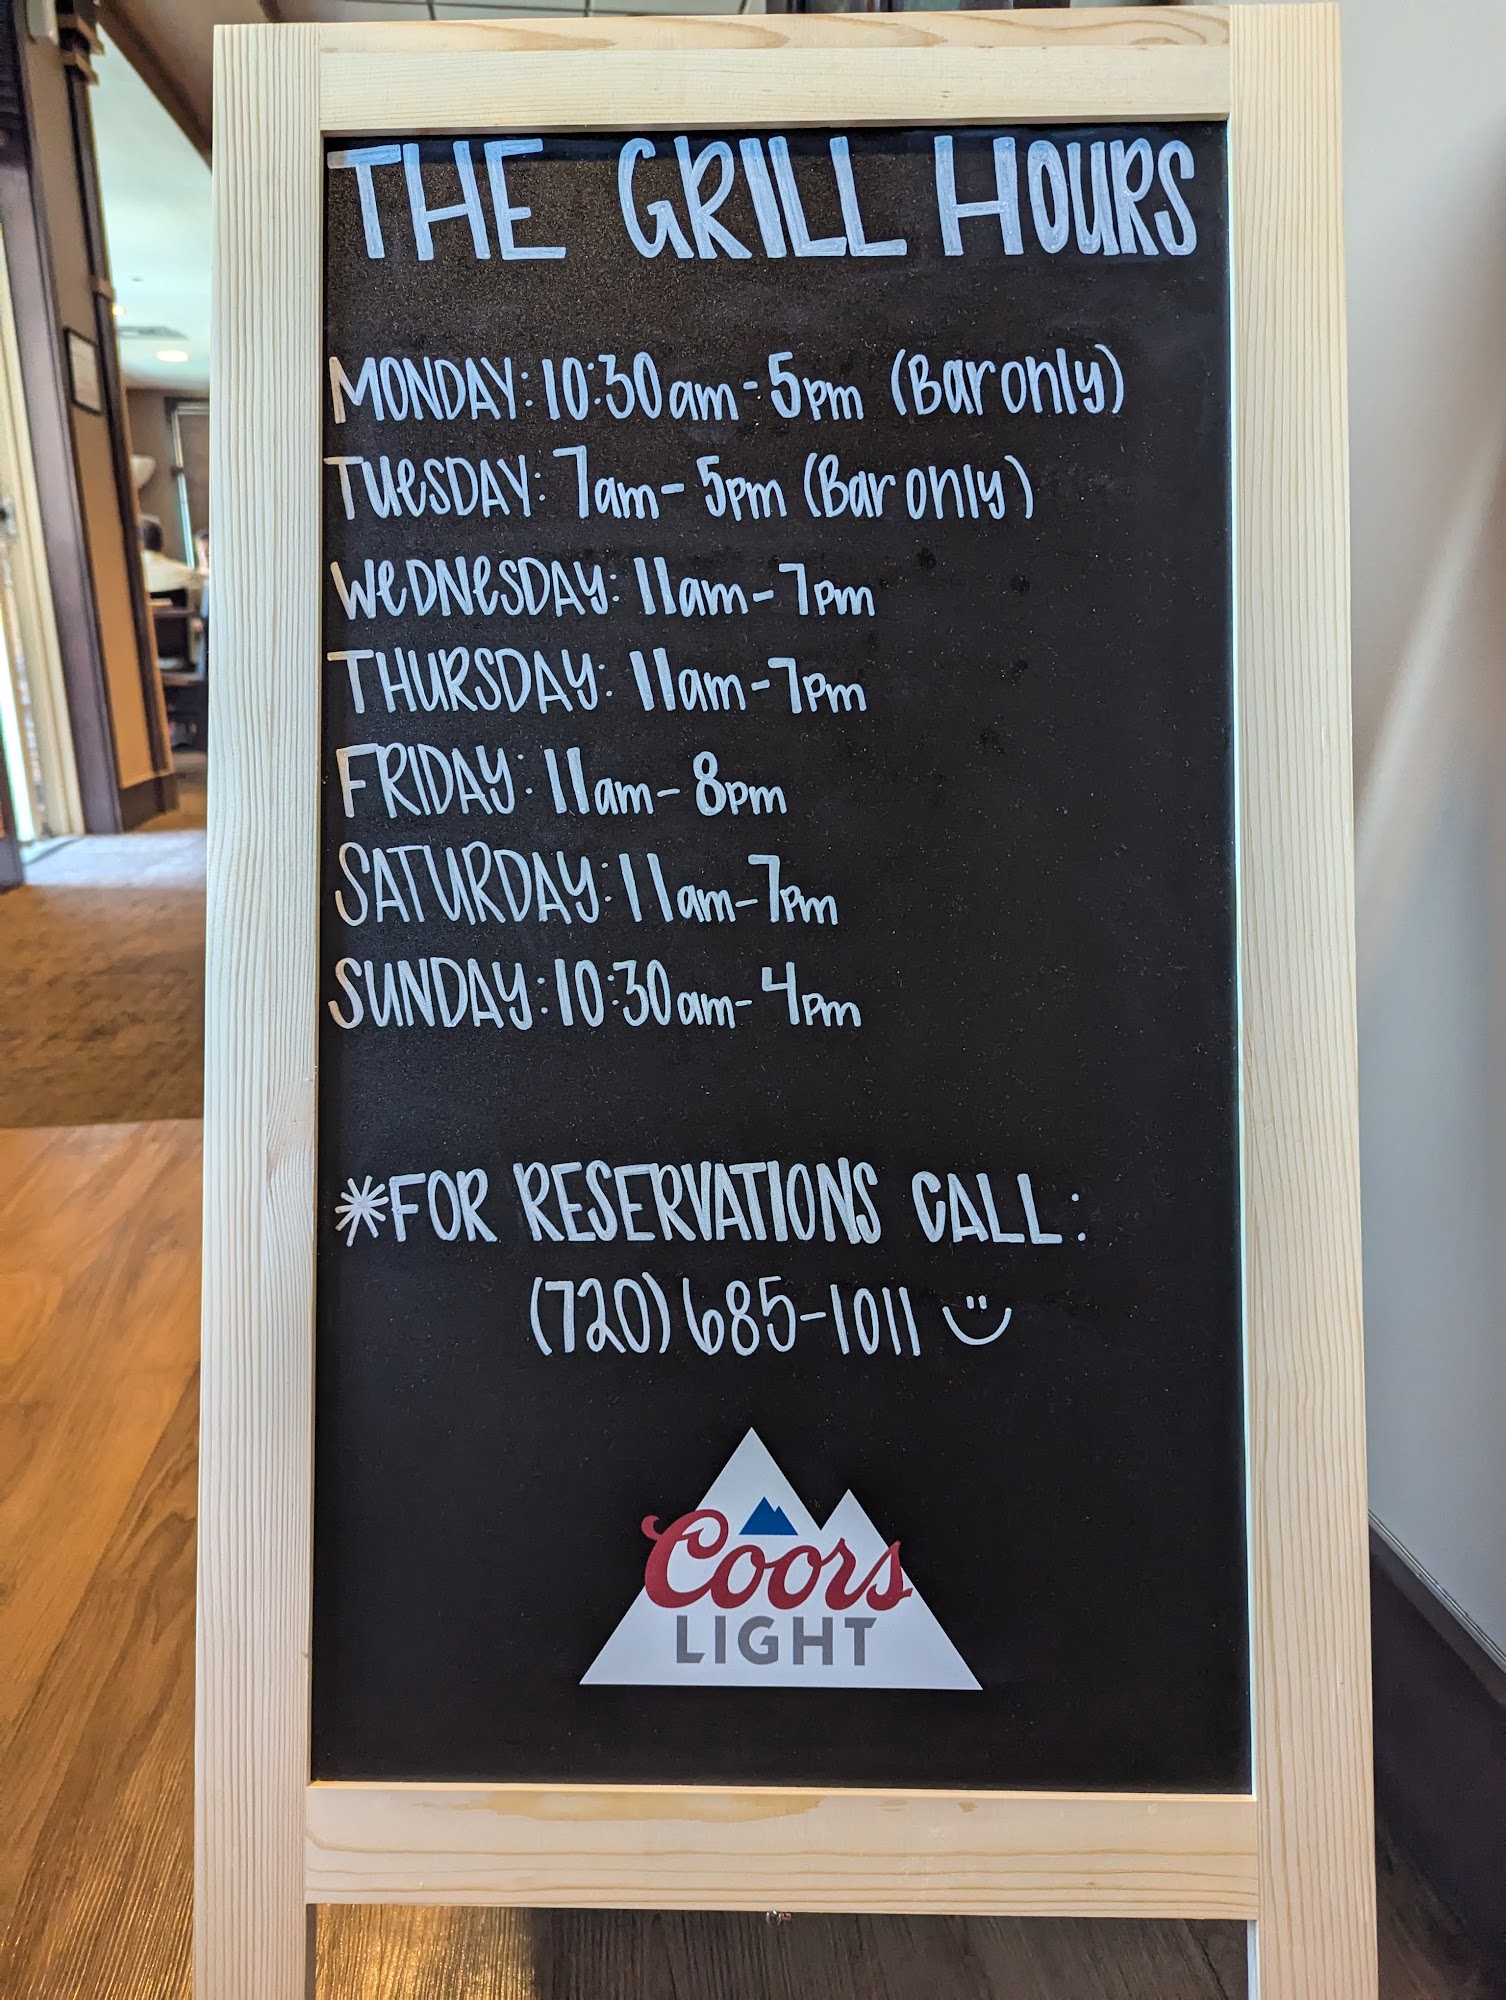 THE GRILL HOURS
MONDAY: 10:30am-5pm (Bar only)
TUESDAY: 7am-5pm (Bar only)
WEDNESDAY: 11am-7pm
THURSDAY: 11am-7pm
FRIDAY: 11am-8pm
SATURDAY: 11am-7pm
SUNDAY: 10:30am-4pm
*FOR RESERVATIONS CALL:
(720) 685-1011
Coors
LIGHT